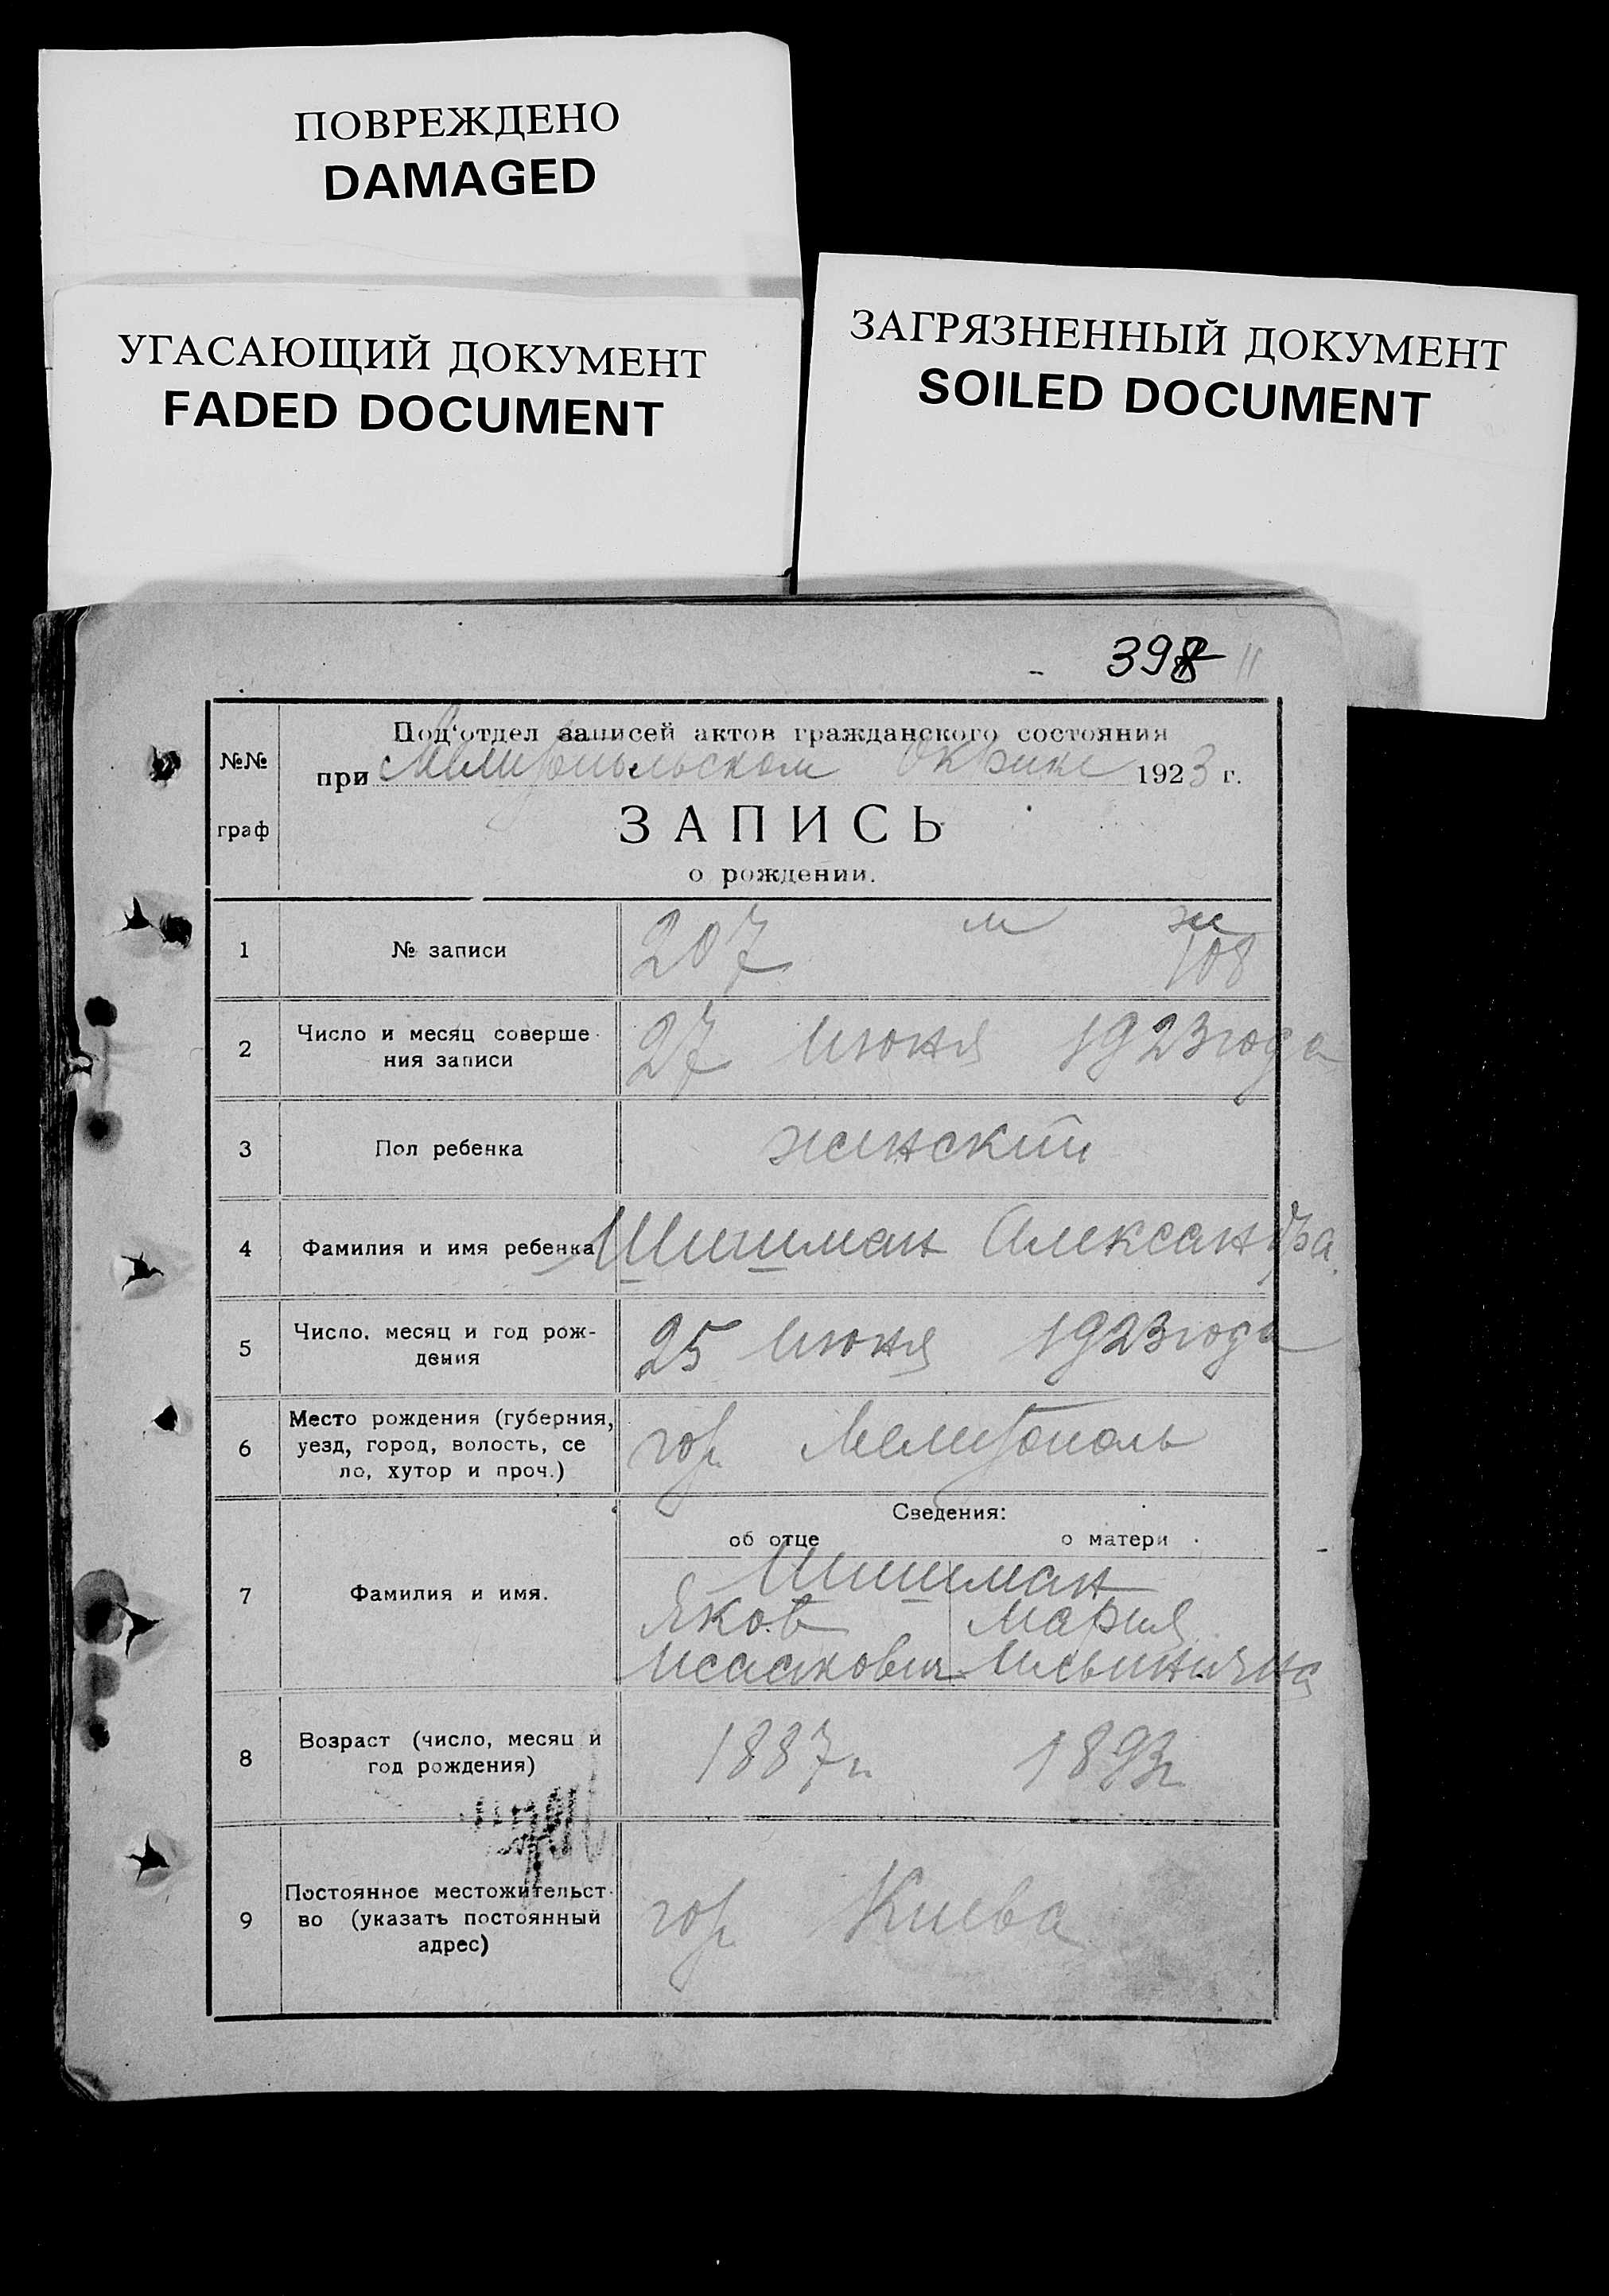 ПОВРЕЖДЕНО
DAMAGED
УГАСАЮЩИЙ ДОКУМЕНТ
FADED DOCUMENT
ЗАГРЯЗНЕННЫЙ ДОКУМЕНТ
SOILED DOCUMENT
398
№№
граф
Под'отдел записей актов гражданского состояния
при Мелитопольском Окрике 1923 г.
ЗАПИСЬ
о рождении.
1
№ записи
207 м ж
108
2
Число и месяц соверше-
ния записи
27 июня 1923 года
3
Пол ребенка
женский
4
Фамилия и имя ребенка
Шишман Александра.
5
Число, месяц и год рож-
дения
25 июня 1923 года
6
Место рождения (губерния,
уезд, город, волость, се
ло, хутор и проч.)
гор. Мелитополь
Сведения:
об отце о матери
7
Фамилия и имя.
Шишман
Яков Мария
Исаакович Ильинична
8
Возраст (число, месяц и
год рождения)
1887 г. 1893 г.
9
Постоянное местожительст-
во (указать постоянный
адрес)
гор. Киева